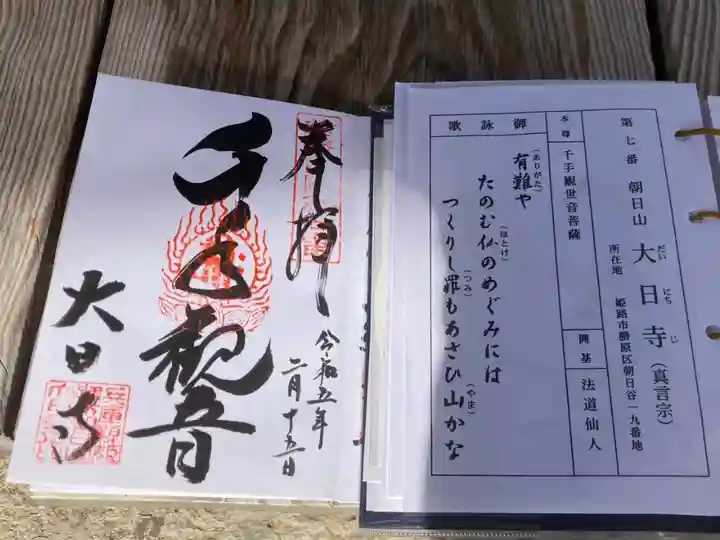 第七番 朝日山 大日寺（真言宗）
だいにちじ
所在地 姫路市勝原区朝日谷一九番地
本尊 千手観世音菩薩
開基 法道仙人
御詠歌
有難や
(ありがた)
たのむ仏のめぐみには
(ほとけ)
つくりし罪もあさひ山かな
(つみ)
(やま)
奉拝
令和五年
二月十五日
千手観音
大日寺